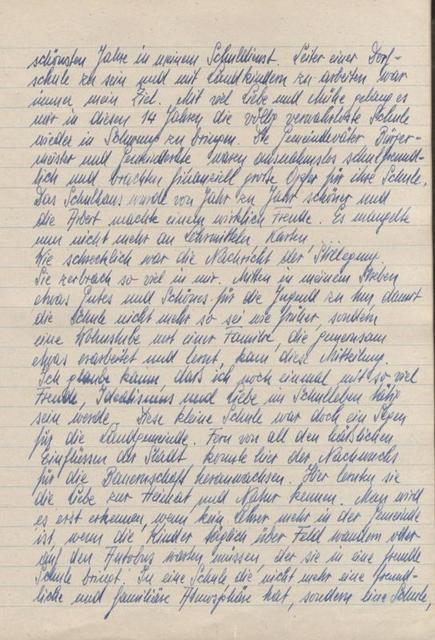 schönsten Jahre in meinem Schuldienst. Leiter einer Dorf-
schule zu sein und mit Landkindern zu arbeiten war
immer mein Ziel. Mit viel Liebe und Mühe gelang es
mir in diesen 14 Jahren die völlig verwahrloste Schule
wieder in Schwung zu bringen. Die Gemeindeväter Bürger-
meister und Gemeinderäte waren ausnahmslos schulfreund-
lich und brachten finanziell große Opfer für ihre Schule.
Das Schulhaus wurde von Jahr zu Jahr schöner und
die Arbeit machte einem wirklich Freude. Es mangelte
nun nicht mehr an Lehrmitteln, Karten
Wie schrecklich war die Nachricht der Stillegung.
Sie zerbrach so viel in mir. Mitten in meinem Streben
etwas Gutes und Schönes für die Jugend zu tun, damit
die Schule nicht mehr so sei wie früher, sondern
eine Wohnstube mit einer Familie, die gemeinsam
etwas erarbeitet und lernt, kam diese Mitteilung.
Ich glaube kaum, dass ich noch einmal mit so viel
Freude, Idealismus und Liebe im Schulleben tätig
sein werde. Diese kleine Schule war doch ein Segen
für die Landgemeinde. Fern von all den hässlichen
Einflüssen der Stadt konnte hier der Nachwuchs
für die Bauernschaft heranwachsen. Hier lernten sie
die Liebe zur Heimat und Natur kennen. Man wird
es erst erkennen, wenn kein Lehrer mehr in der Gemeinde
ist, wenn die Kinder täglich über Feld wandern oder
auf den Autobus warten müssen, der sie in eine fremde
Schule bringt. In eine Schule die nicht mehr eine freund-
liche und familiäre Atmosphäre hat, sondern eine Schule,